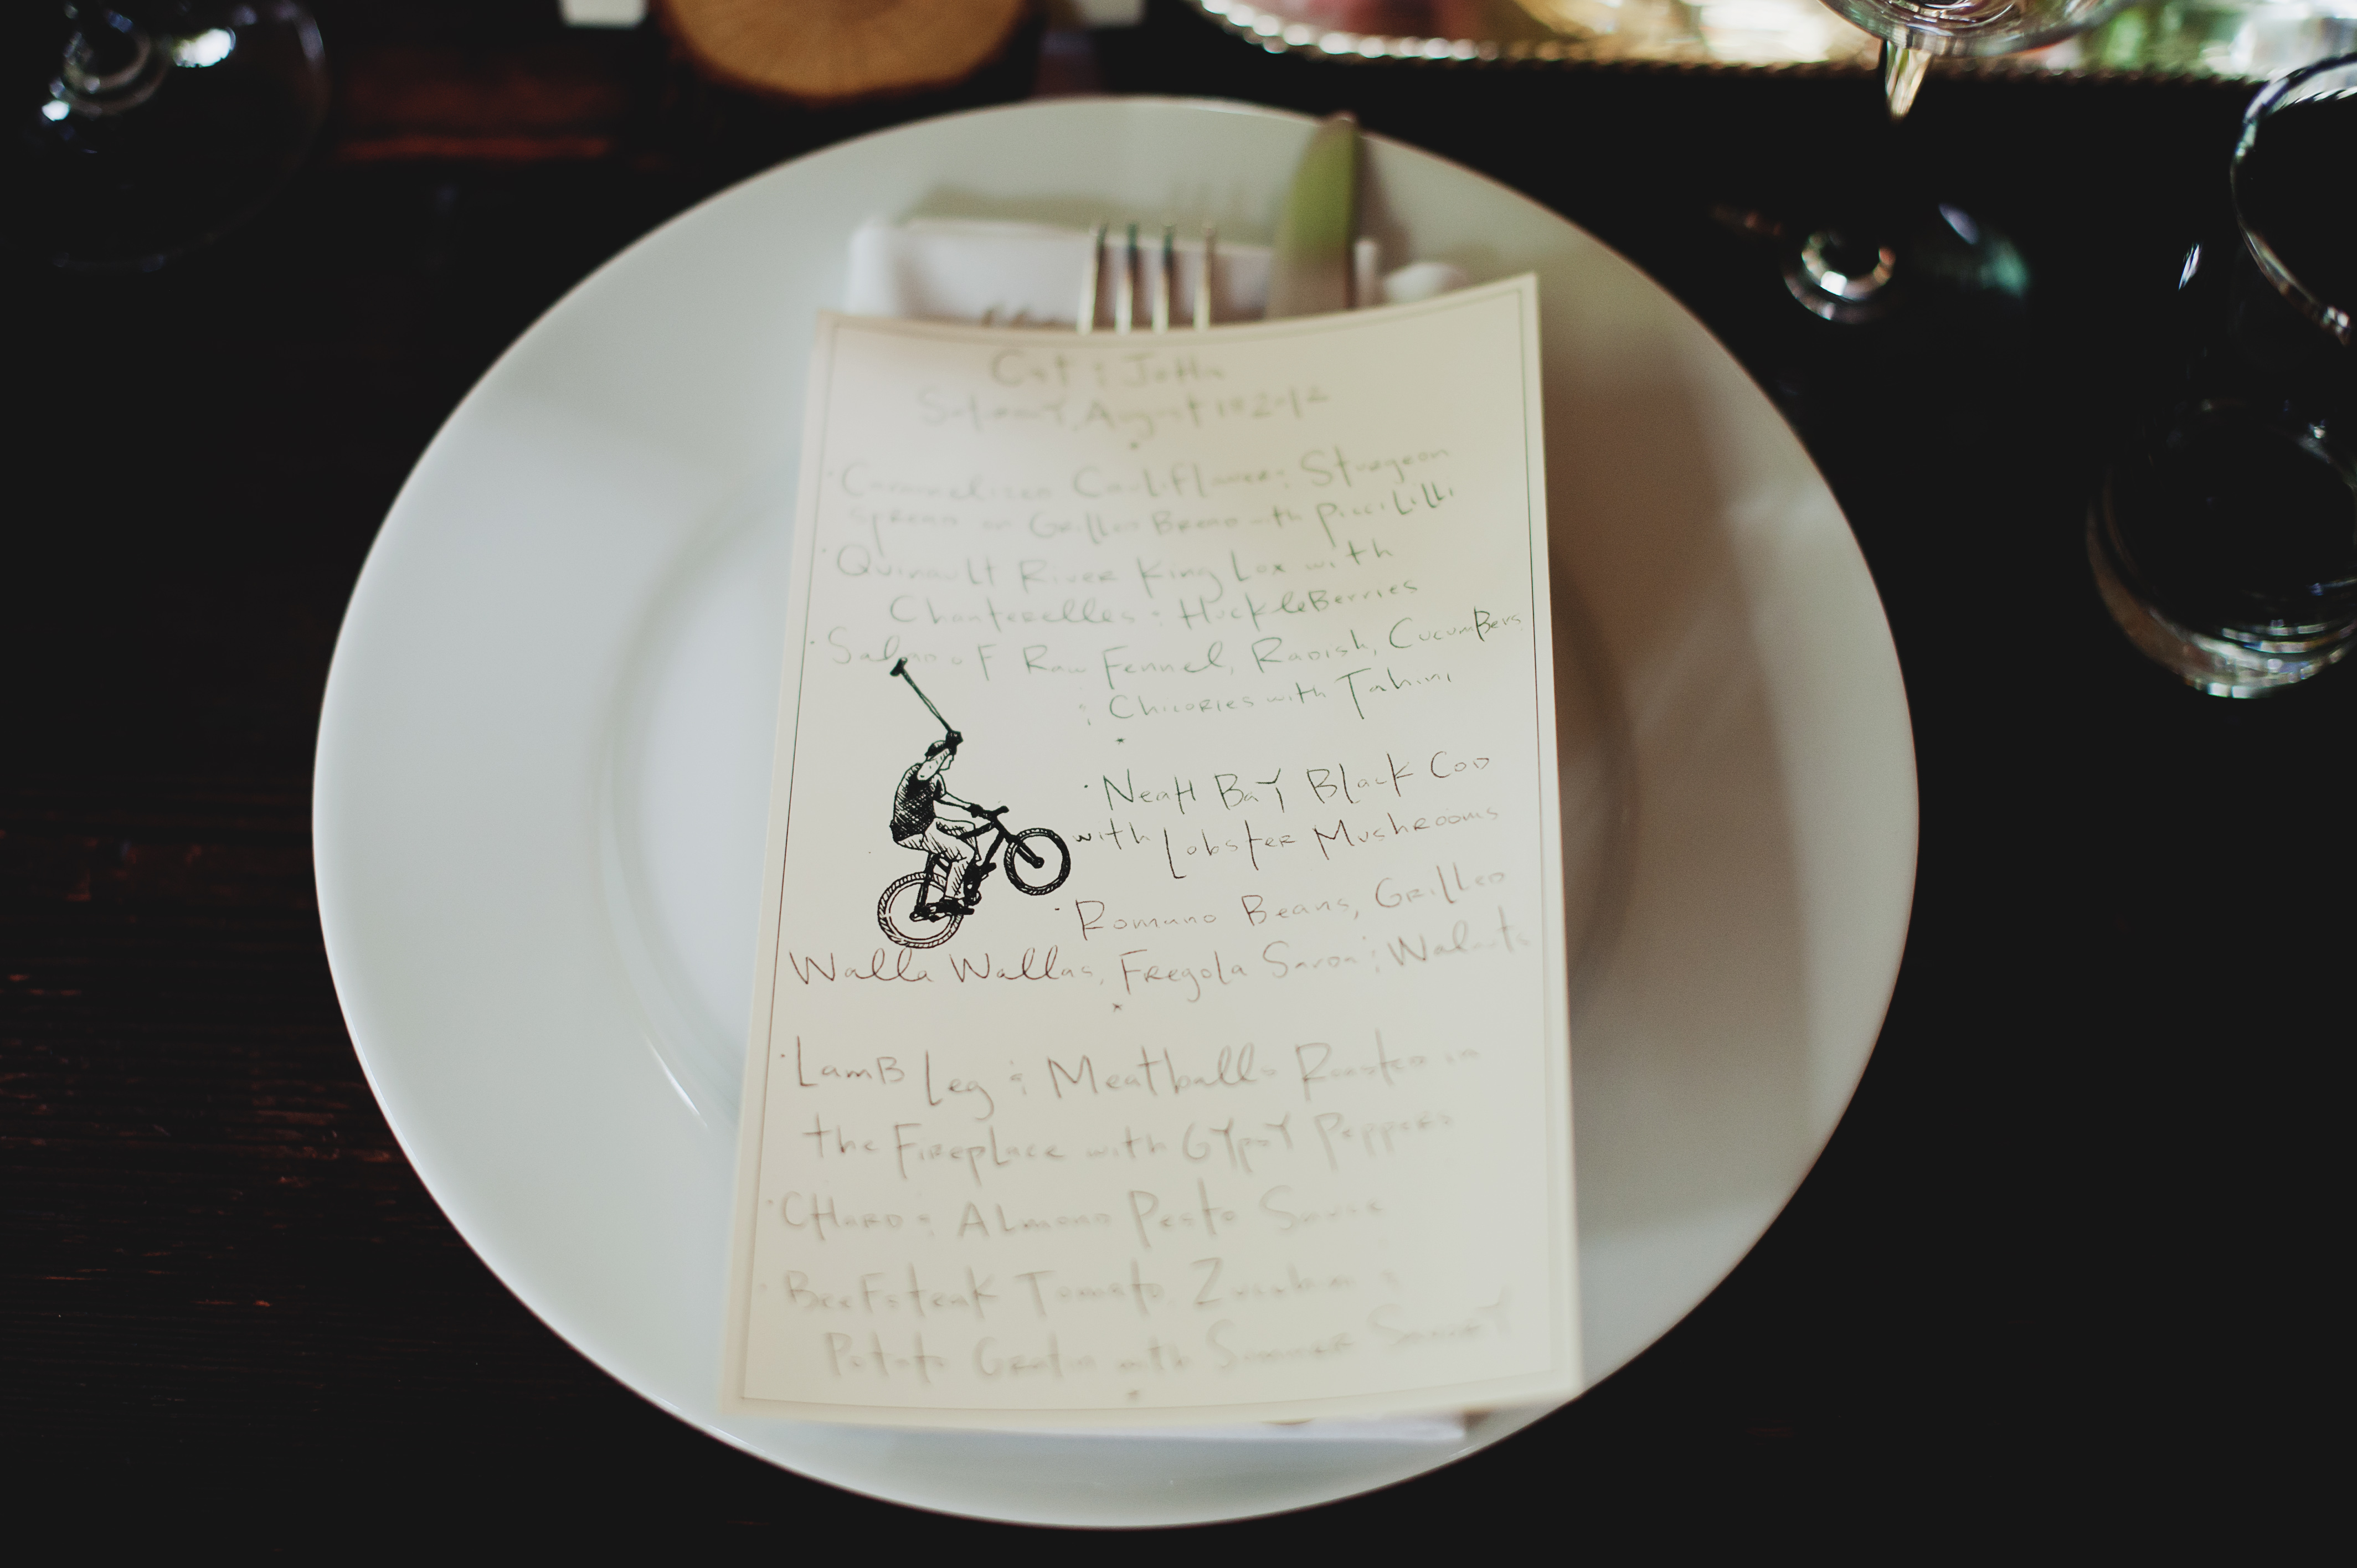 Cat & 
Saturday, August 18 2012
· Caramelized Cauliflower & Sturgeon
Spread on Grilled Bread with Piccililli
· Quinault River King Lox with
Chanterelles & HuckleBerries
· Salad of Raw Fennel, Radish, Cucumbers
& Chicories with Tahini
· Neah Bay Black Cod
with Lobster Mushrooms
· Romano Beans, Grilled
Walla Wallas, Fregola Sarda & Walnuts
· Lamb Leg & Meatballs Roasted in
the Fireplace with Gypsy Peppers
· Chard & Almond Pesto Sauce
· Beefsteak Tomato, Zucchini &
Potato Gratin with Summer Savory